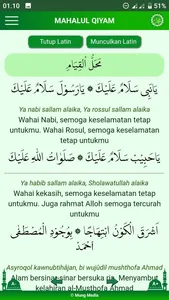 01.10
53%
MAHALUL QIYAM
Tutup Latin
Munculkan Latin
مَحَلُّ الْقِيَامِ
يَانَبِى سَلَامٌ عَلَيْكَ ۞ يَارَسُوْل سَلَامٌ عَلَيْكَ
Ya nabi sallam alaika, Ya rossul sallam alaika
Wahai Nabi, semoga keselamatan tetap
untukmu. Wahai Rosul, semoga keselamatan
tetap untukmu
يَاحَبِيْبْ سَلَامٌ عَلَيْكَ ۞ صَلَوَاتُ اللهِ عَلَيْكَ
Ya habib sallam alaika, Sholawatullah alaika
Wahai kekasih, semoga keselamatan tetap
untukmu. Juga rahmat Alloh semoga tercurah
untukmu
اَشْرَقَ الْكَوْنُ ابْتِهَاجًا ۞ بِوُجُوْدِ الْمُصْطَفَى
احْمَدْ
Asyroqol kawnubtihājan, bi wujūdil mushthofa Ahmad
Alam bersinar-sinar bersuka ria, Menyambut
kelahiran al-Musthofa Ahmad
© Mung Media